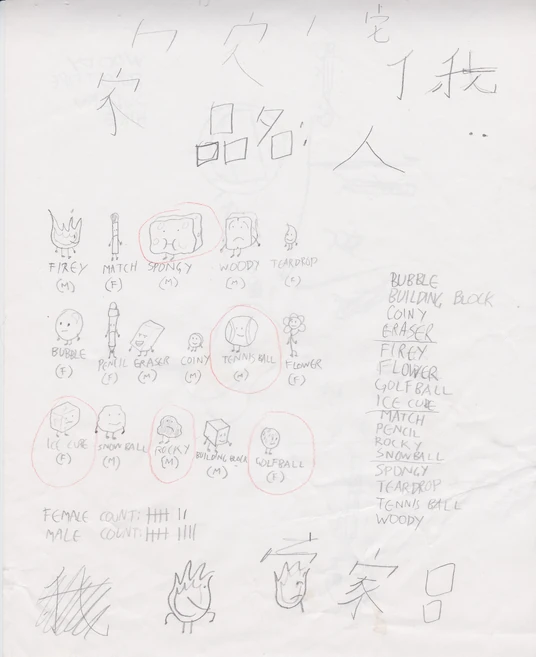 宅
家
俄
品名:
人
FIREY MATCH SPONGY WOODY TEARDROP
(M) (F) (M) (M)
BUBBLE PENCIL ERASER COINY TENNIS BALL FLOWER
(F) (F) (M) (M) (M) (F)
ICE CUBE SNOWBALL ROCKY BUILDING BLOCK GOLFBALL
(F) (M) (M) (M) (F)
FEMALE COUNT: 卌 ||
MALE COUNT: 卌 ||||
BUBBLE
BUILDING BLOCK
COINY
ERASER
FIREY
FLOWER
GOLFBALL
ICE CUBE
MATCH
PENCIL
ROCKY
SNOWBALL
SPONGY
TEARDROP
TENNIS BALL
WOODY
家 品